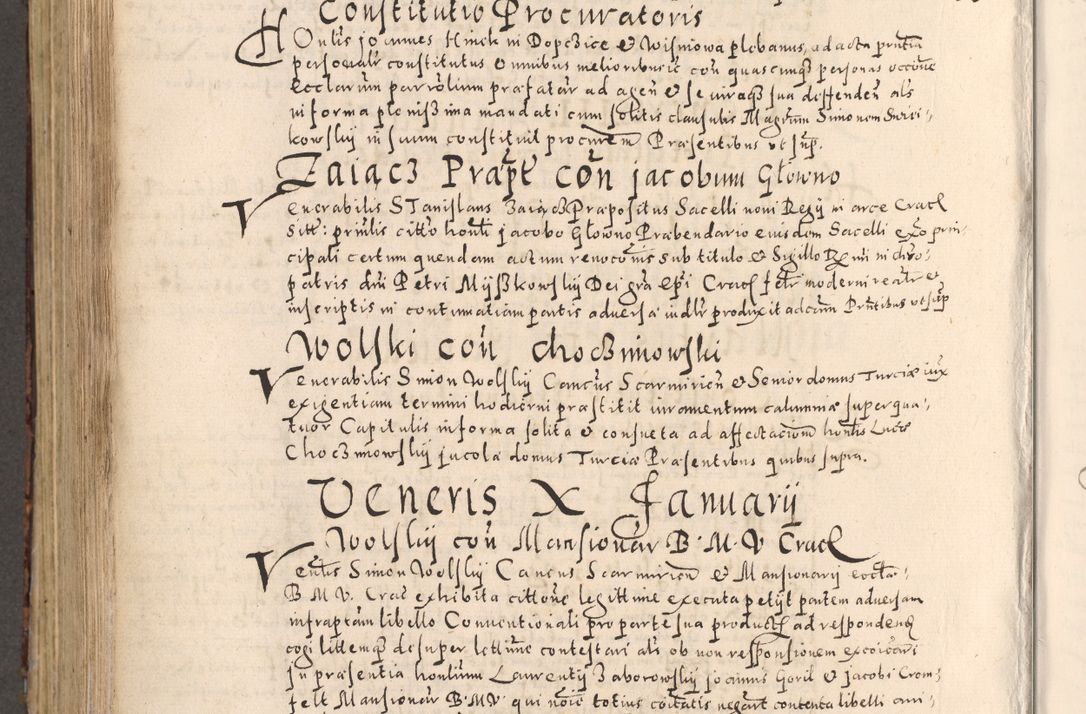 Constitutio Procuratoris
Honlis joannes Hinek in Dopczice et Wisniowa plebanus, ad acta pntia
personalr constitutus omnibus melioribus etc con quascumq personas occone
Ecclarum parrolium præfatar ad agen et se viraq sua diffenden als
in forma plenissima mandati cum solitis clausulis Magrum Simonem Surri-
kowskij in suum constituit procurem Præsentibus vt supr.
Zaiącz Præpt con jacobum Głowno
Venerabilis Stanislaus Zaiącz Præpositus Sacelli noui Regij in arce Crac
Sitt: prnilis citto honli jacobo Głowno Præbendario eiusdem Sacelli exo prin-
cipali certum quendam actum reuoconis sub titulo et Sigillo Rxmi in chro-
patris dni Petri Mijszkowskij Dei gra Epi Crac fetr moderni reatr et
inscriptis in contumatiam partis aduersa indlr produxit ad eam Prntibus vt supr
Wolski con Choczmiowski
Venerabilis Simon Wolskij Cancus Scarmirien et Senior domus Turciæ iux
exigentiam termini hodierni præstitit iuramentum calumniæ super qua-
tuor Capitulis in forma solita et consueta ad affectacionem honlis Lucæ
Choczmiowskij jncola domus Turciæ Præsentibus quibus supra.
Veneris X Januarij
Wolskij con Mansionar B. M. V Crac
Venlis Simon Wolskij Cancus Scarmirien et Mansionarij eccla-
B M V. Crac exhibita cittone legittime executa petijt partem aduersam
infraptam libello Conuentionali pro parte sua product ad respondenq
cogi litemq desuper lettime contestari als ob non responsionem excoicari
jn præsentia honlium Laurentij Zaborowskij joannis Goril et jacobi Crom-
felt Mansionar B. M V. qui noie totius coitatis negart contenta libelli ani-